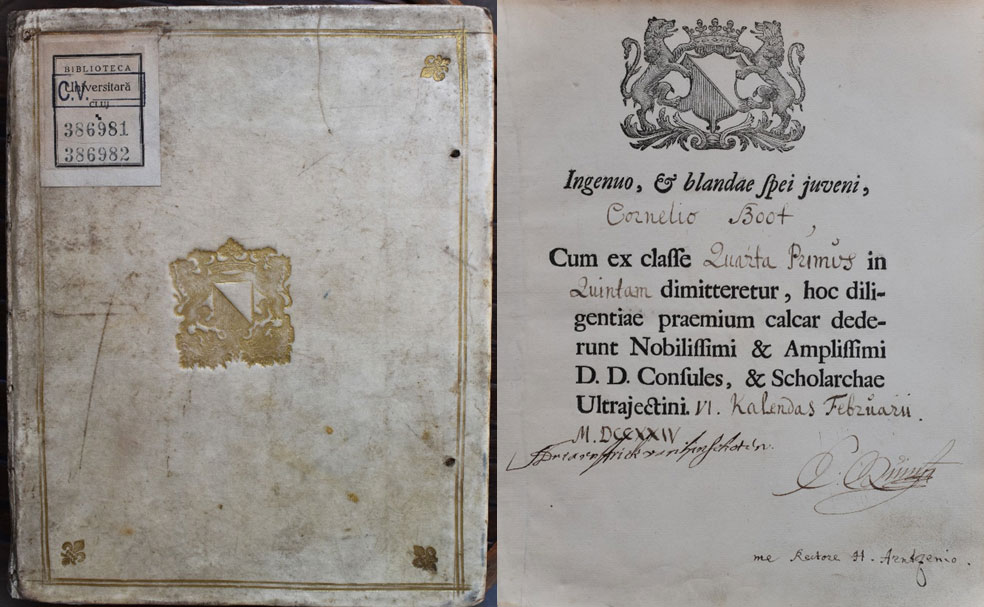 BIBLIOTECA
Universitară
C.V.
CLUJ
386981
386982
Ingenuo, & blandae ſpei juveni,
Cornelio Boot,
Cum ex claſſe Quarta Primus in
Quintam dimitteretur, hoc dili-
gentiae praemium calcar dede-
runt Nobiliſſimi & Ampliſſimi
D. D. Conſules, & Scholarchae
Ultrajectini. VI. Kalendas Februarii.
M.DCCXXIV
me Rectore H. Arntzenio.